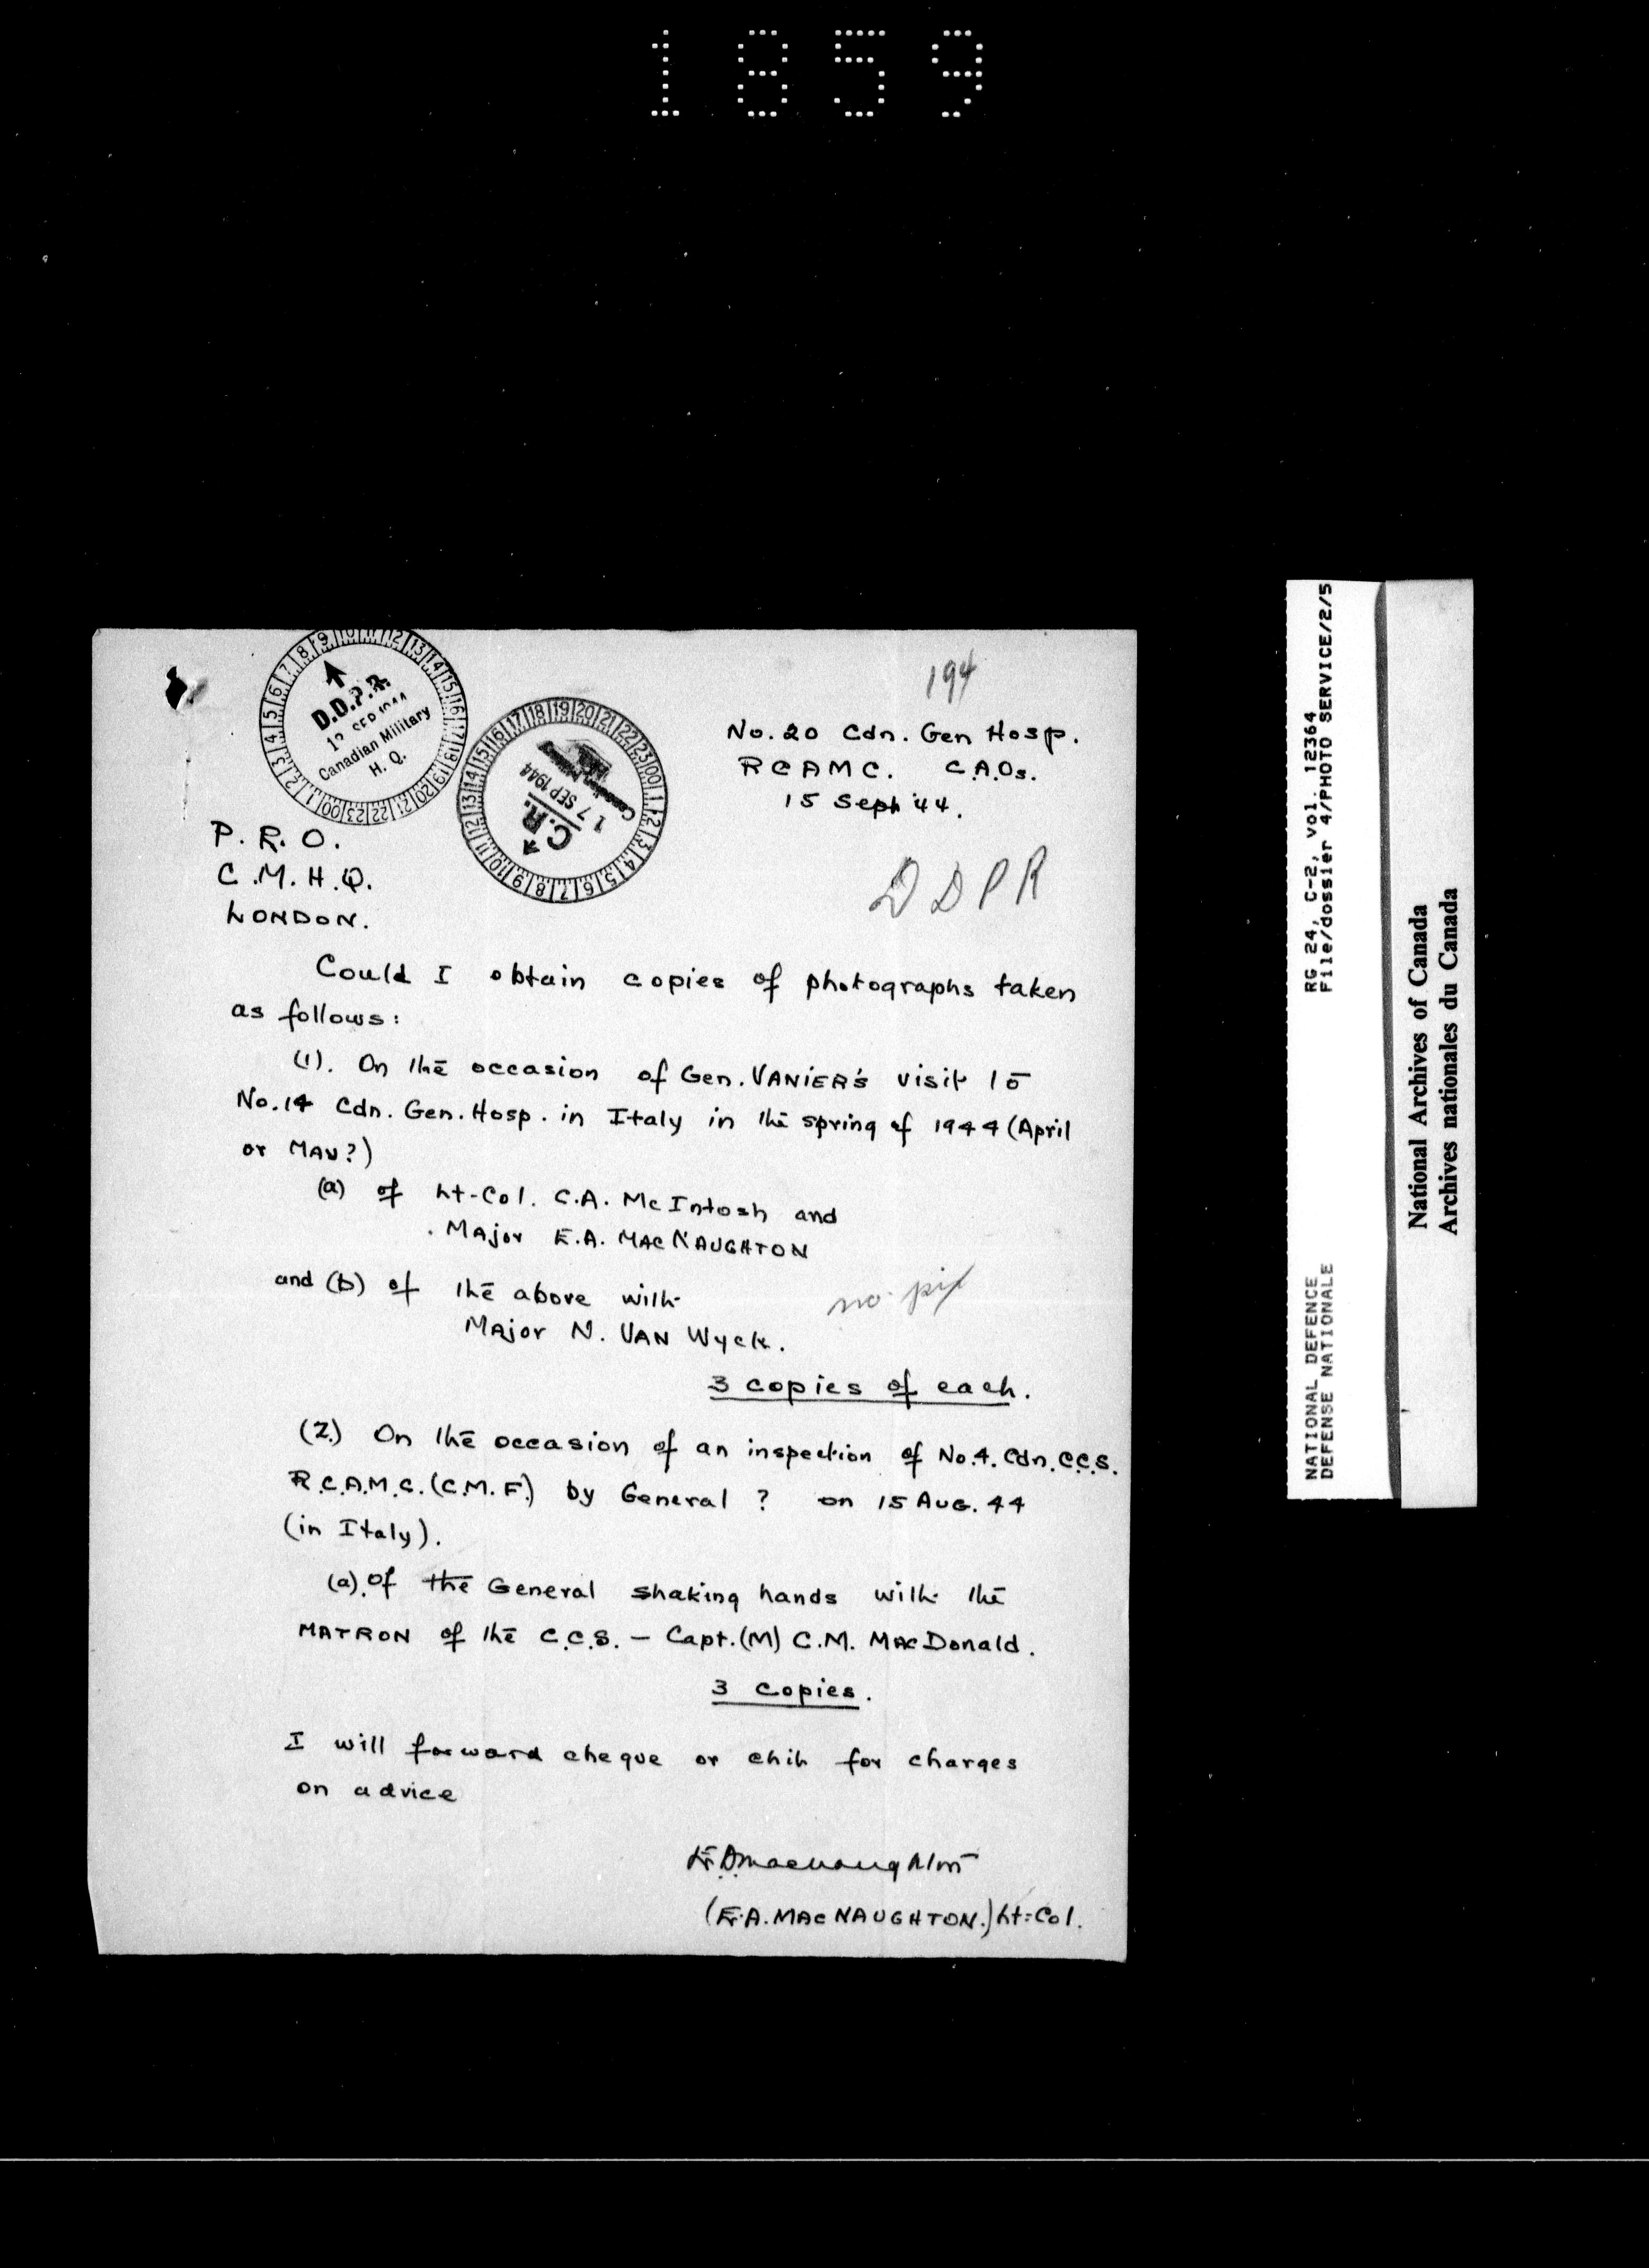 1859
194
D.D.P.R.
SEP 1944
Canadian Military
H. Q.
C.R.
17 SEP 1944
No. 20 Cdn. Gen Hosp.
RCAMC. C.A.Os.
15 Sept '44.
P. R. O.
C.M.H.Q.
LONDON.
DDPR
Could I obtain copies of photographs taken
as follows:
(1). On the occasion of Gen. VANIER'S visit to
No. 14 Cdn. Gen. Hosp. in Italy in the spring of 1944 (April
or MAY?)
(a) of Lt-Col. C.A. McIntosh and
Major E.A. MACNAUGHTON
and (b) of the above with
Major N. VAN Wyck.
no pix
3 copies of each.
(2.) On the occasion of an inspection of No. 4. Cdn. C.C.S.
R.C.A.M.C. (C.M.F.) by General ? on 15 AUG. 44
(in Italy).
(a). of the General shaking hands with the
MATRON of the C.C.S. – Capt. (M) C.M. MACDonald.
3 copies.
I will forward cheque or chit for charges
on advice
E.A. MacNaughton
(E.A. MACNAUGHTON.) Lt=Col.
RG 24, C-2, vol. 12364
File/dossier 4/PHOTO SERVICE/2/5
NATIONAL DEFENCE
DEFENSE NATIONALE
National Archives of Canada
Archives nationales du Canada